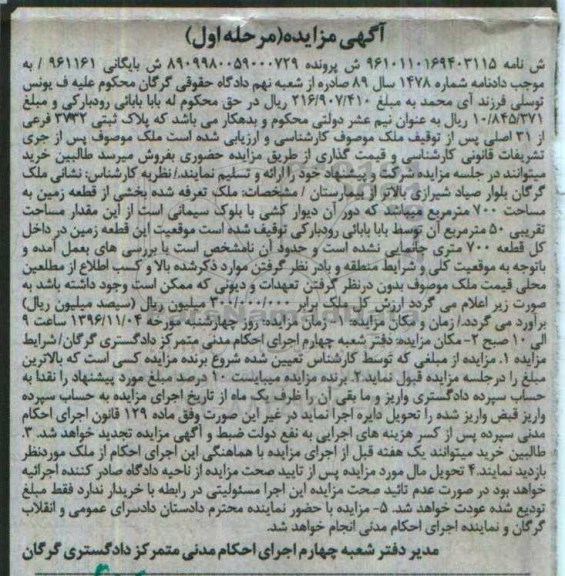 آگهی مزایده(مرحله اول)
ش نامه ۹۶۱۰۱۱۰۱۶۹۴۰۳۱۱۵ ش پرونده ۸۹۰۹۹۸۰۰۵۹۰۰۰۷۲۹ ش بایگانی ۹۶۱۱۶۱ / به
موجب دادنامه شماره ۱۴۷۸ سال ۸۹ صادره از شعبه نهم دادگاه حقوقی گرگان محکوم علیه ف یونس
توسلی فرزند آی محمد به مبلغ ۲۱۶/۹۰۷/۴۱۰ ریال در حق محکوم له بابا بابائی رودبارکی و مبلغ
۱۰/۸۴۵/۳۷۱ ریال به عنوان نیم عشر دولتی محکوم و بدهکار می باشد که پلاک ثبتی ۳۷۳۲ فرعی
از ۳۱ اصلی پس از توقیف ملک موصوف کارشناسی و ارزیابی شده است ملک موصوف پس از جری
تشریفات قانونی کارشناسی و قیمت گذاری از طریق مزایده حضوری بفروش میرسد طالبین خرید
میتوانند در جلسه مزایده شرکت و پیشنهاد خود را ارائه و تسلیم نمایند./ نظریه کارشناس: نشانی ملک
گرگان بلوار صیاد شیرازی بالاتر از بیمارستان / مشخصات: ملک تعرفه شده بخشی از قطعه زمین به
مساحت ۷۰۰ مترمربع میباشد که دور آن دیوار کشی با بلوک سیمانی است از این مقدار مساحت
تقریبی ۵۰ مترمربع آن توسط بابا بابائی رودبارکی توقیف شده است موقعیت این قطعه زمین در داخل
کل قطعه ۷۰۰ متری جانمایی نشده است و حدود آن نامشخص است با بررسی های بعمل آمده و
باتوجه به موقعیت کلی و شرایط منطقه و بادر نظر گرفتن موارد ذکرشده بالا و کسب اطلاع از مطلعین
محلی قیمت ملک موصوف بدون درنظر گرفتن تعهدات و دیونی که ممکن است وجود داشته باشد به
صورت زیر اعلام می گردد ارزش کل ملک برابر ۳۰۰/۰۰۰/۰۰۰ میلیون ریال (سیصد میلیون ریال)
برآورد می گردد./ زمان و مکان مزایده: ۱- زمان مزایده: روز چهارشنبه مورخه ۱۳۹۶/۱۱/۰۴ ساعت ۹
الی ۱۰ صبح ۲- مکان مزایده: دفتر شعبه چهارم اجرای احکام مدنی متمرکز دادگستری گرگان/ شرایط
مزایده ۱. مزایده از مبلغی که توسط کارشناس تعیین شده شروع برنده مزایده کسی است که بالاترین
مبلغ را درجلسه مزایده قبول نماید.۲. برنده مزایده میبایست ۱۰ درصد مبلغ مورد پیشنهاد را نقدا به
حساب سپرده دادگستری واریز و ما بقی آن را ظرف یک ماه از تاریخ اجرای مزایده به حساب سپرده
واریز قبض واریز شده را تحویل دایره اجرا نماید در غیر این صورت وفق ماده ۱۲۹ قانون اجرای احکام
مدنی سپرده پس از کسر هزینه های اجرایی به نفع دولت ضبط و آگهی مزایده تجدید خواهد شد. ۳.
طالبین خرید میتوانند یک هفته قبل از اجرای مزایده با هماهنگی این اجرای احکام از ملک موردنظر
بازدید نمایند.۴ تحویل مال مورد مزایده پس از تایید صحت مزایده از ناحیه دادگاه صادر کننده اجرائیه
خواهد بود در صورت عدم تائید صحت مزایده این اجرا مسئولیتی در رابطه با خریدار ندارد فقط مبلغ
تودیع شده عودت خواهد شد. ۵- مزایده با حضور نماینده محترم دادستان دادسرای عمومی و انقلاب
گرگان و نماینده اجرای احکام مدنی انجام خواهد شد.
مدیر دفتر شعبه چهارم اجرای احکام مدنی متمرکز دادگستری گرگان